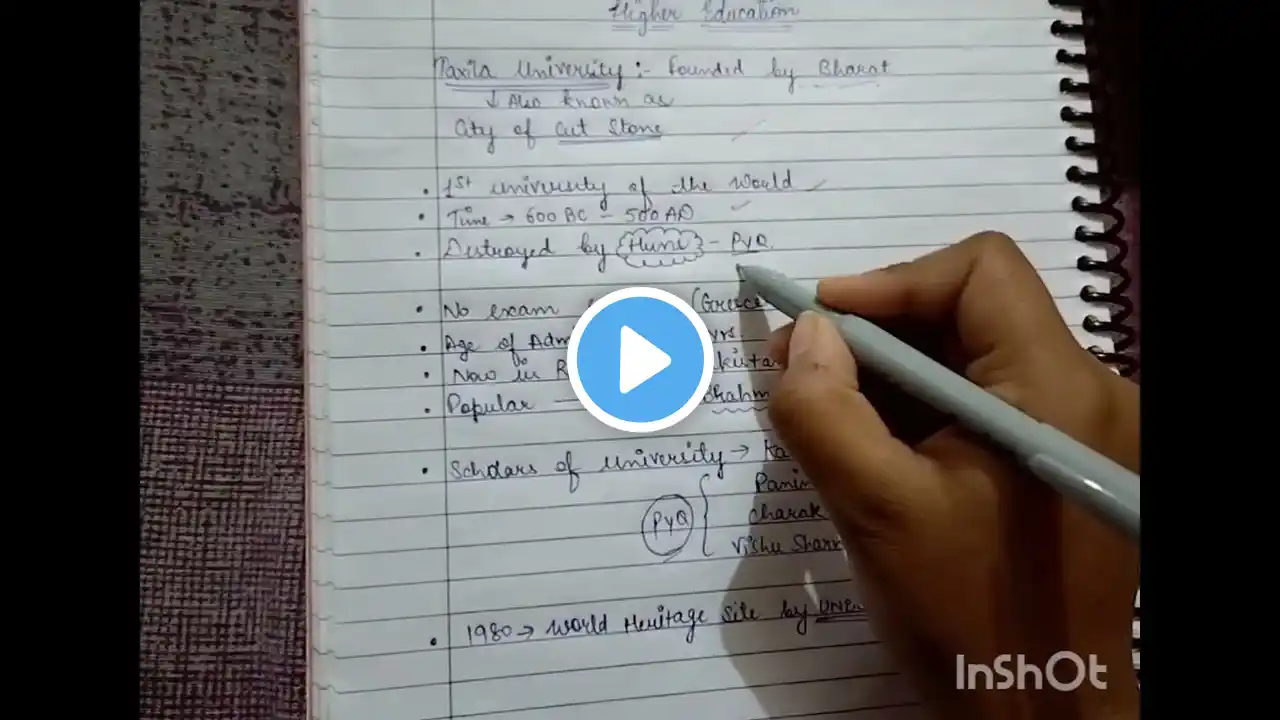 Higher Education
Taxila University :- Founded by Bharat
↓ Also known as
City of Cut Stone
• 1st university of the World
• Time → 600 BC - 500 AD
• Destroyed by Huns - PYQ
• No exam (Greece
• Age of Adm yrs.
• Now in R kistan
• Popular — Brahm
• Scholars of university → Ka
Panin
PYQ
Charak
Vishu Sharm
• 1980 → World Heritage Site by UNES
InShOt